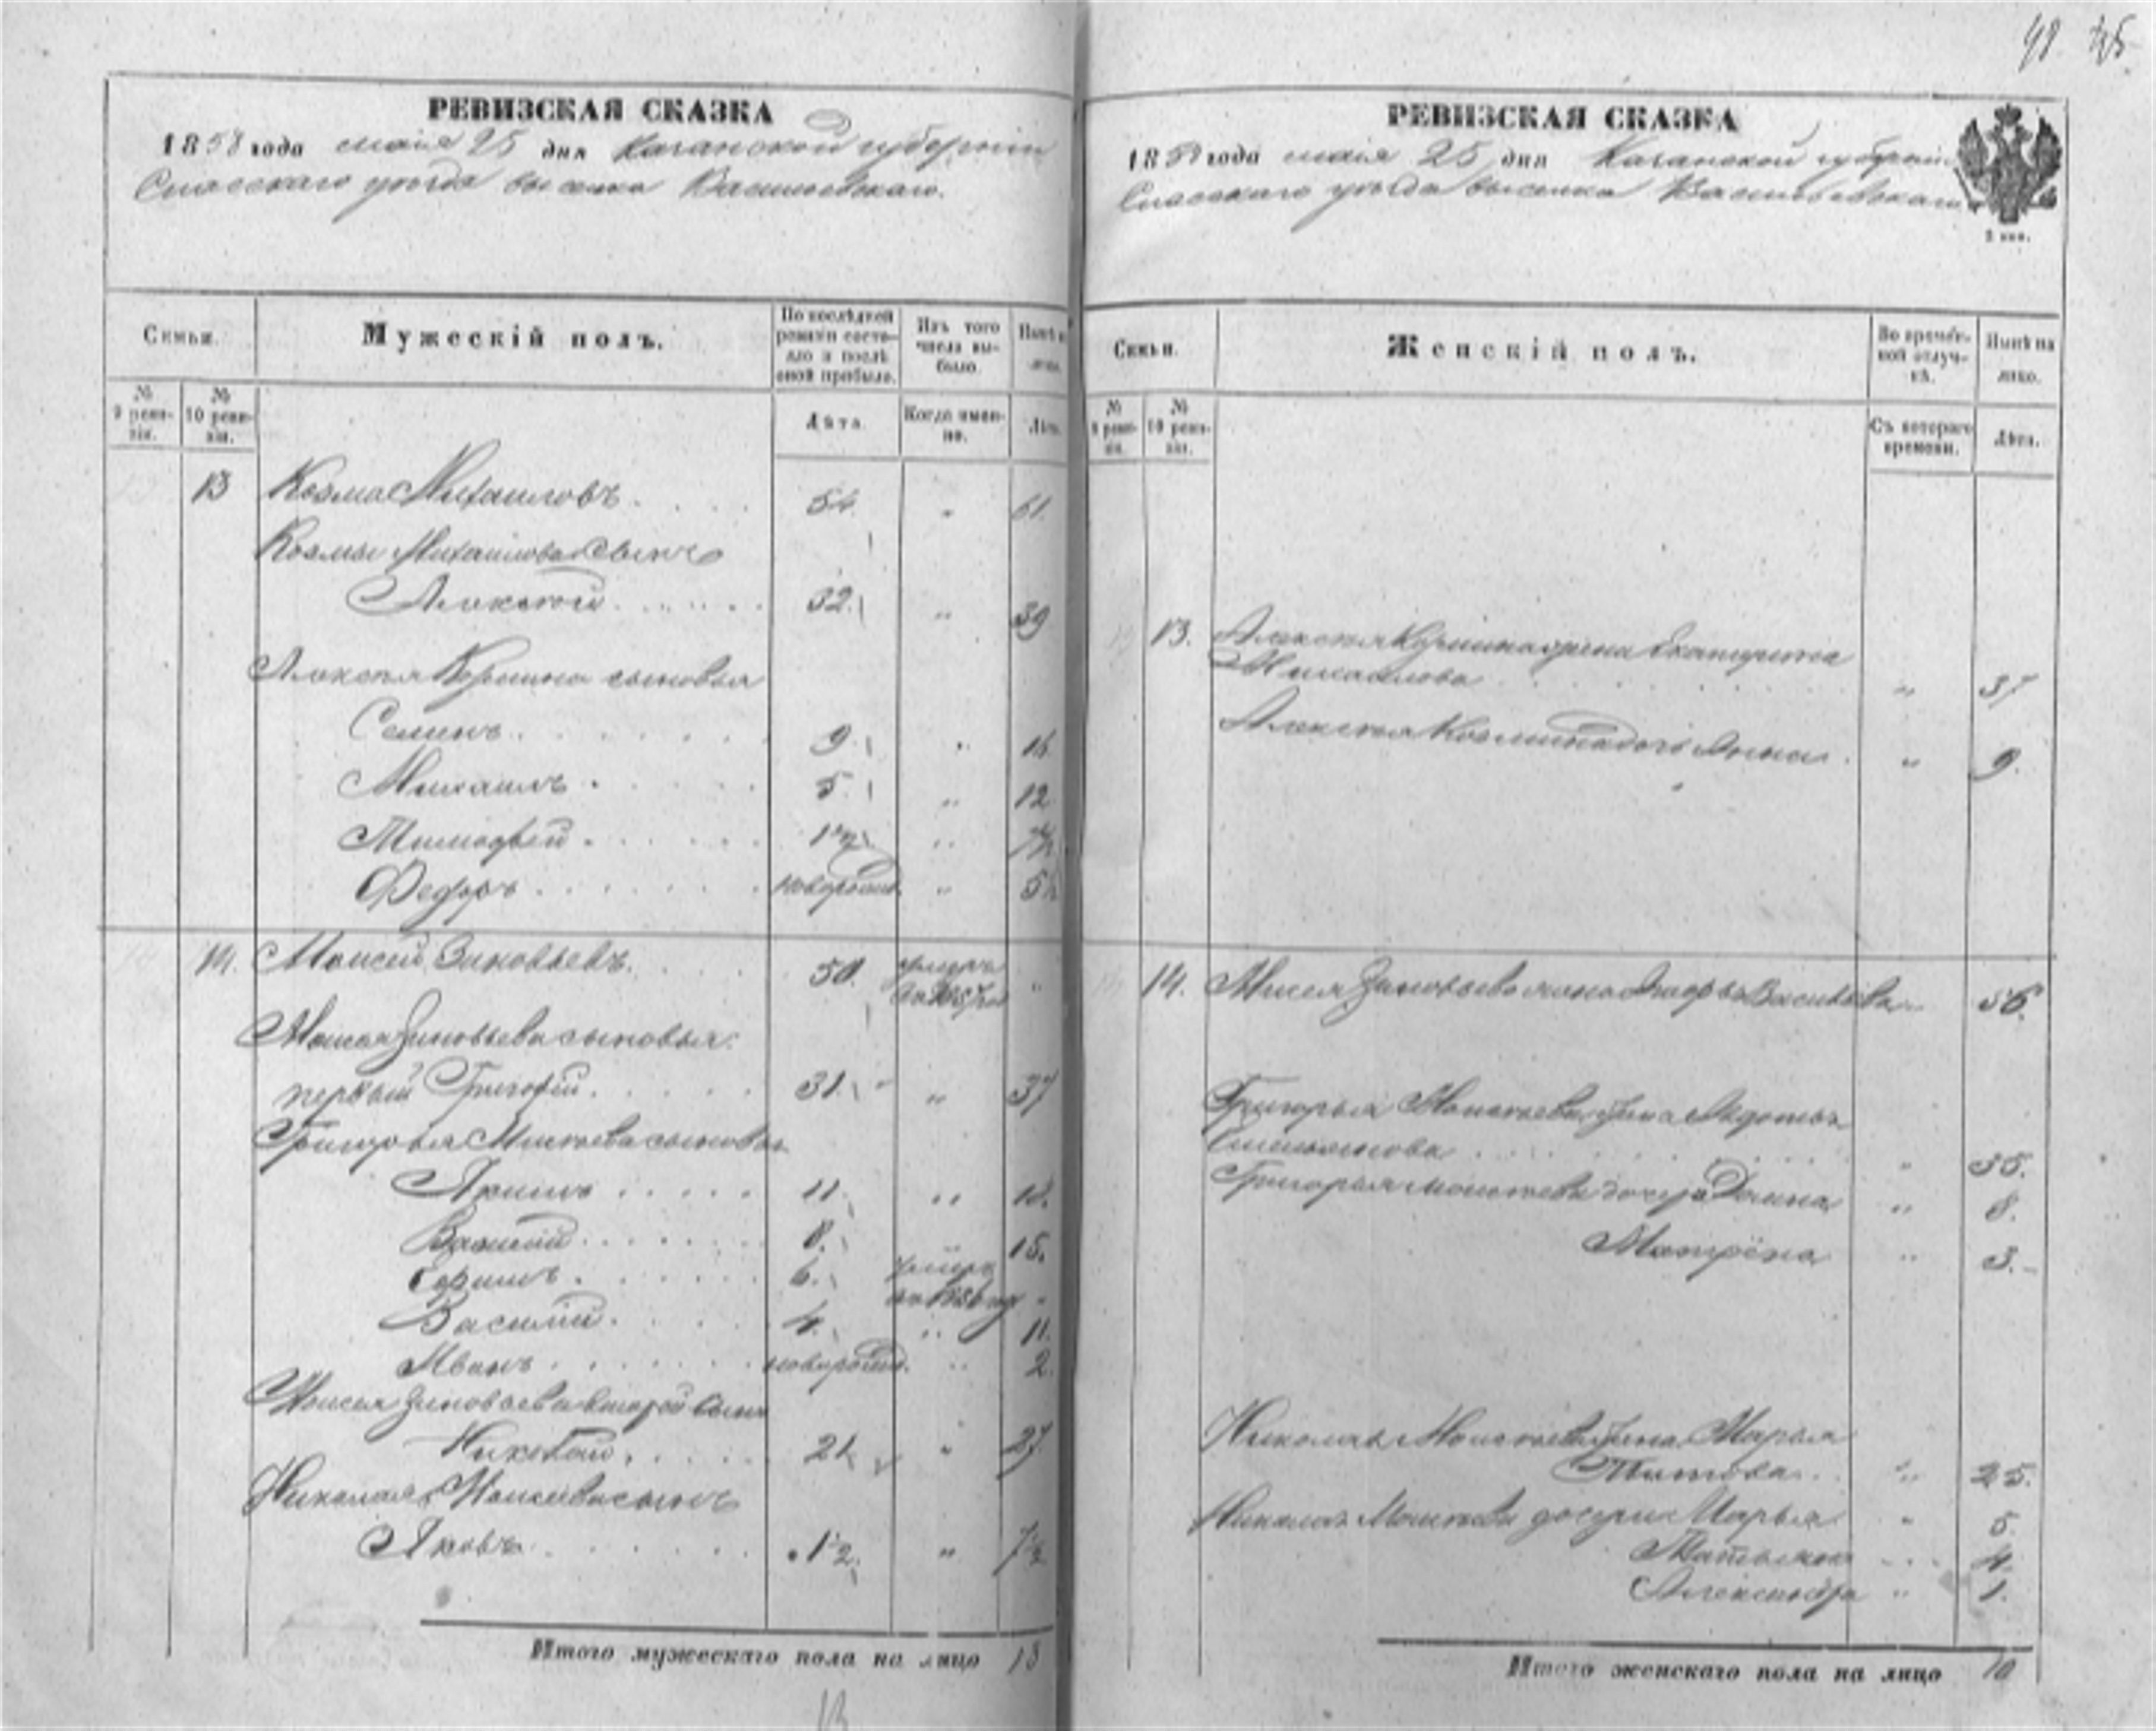 РЕВИЗСКАЯ СКАЗКА
1858 года маія 25 дня Казанской губерніи
Спасскаго уѣзда выселка Васильевскаго.
Семьи.
Мужескій полъ.
По послѣдней ревизіи состояло и послѣ оной прибыло.
Изъ того числа выбыло.
Нынѣ на лицо.
№ 9 ревизіи.
№ 10 ревизіи.
Лѣта.
Когда именно.
Лѣта.
13 Козма Михаиловъ. 54. " 61.
Козмы Михаилова сынъ
Алексѣй 32. " 39
Алексѣя Козмина сыновья
Семенъ 9. " 16
Михаилъ 5. " 12
Тимофей 1½ "
Федоръ новорожд. " 5½
14. Моисей Зиновьевъ. 50. умеръ "
Моисея Зиновьева сыновья:
первый Григорій. 31. " 37
Григорья Моисеева сыновья
Якимъ 11. " 18.
Василій 8. 15.
6. умеръ въ 1856 году "
Василій 4. " 11.
Иванъ новорожд. " 2.
Моисея Зиновьева второй сынъ
Николай. 21. " 27.
Николая Моисеева сынъ
Яковъ 1½. " 7½
Итого мужескаго пола на лицо 13
13
РЕВИЗСКАЯ СКАЗКА
1858 года маія 25 дня Казанской губерніи
Спасскаго уѣзда выселка Васильевскаго
Семьи.
Женскій полъ.
Во временной отлучкѣ.
Нынѣ на лицо.
№ 9 ревизіи.
№ 10 ревизіи.
Съ котораго времени.
Лѣта.
13. Алексѣя Козмина жена Екатерина
Михаилова " 37
Алексѣя Козмина дочь Анна. " 9.
14. Моисея Зиновьева жена Васильева 56.
Григорья Моисеева жена Авдотья
" 35.
Григорья Моисеева дочери " 8.
Матрёна " 3.
Николая Моисеева жена Марья
Титова. " 25.
Николая Моисеева дочери Марья " 5.
Татьяна 4.
Александра " 1.
Итого женскаго пола на лицо 10